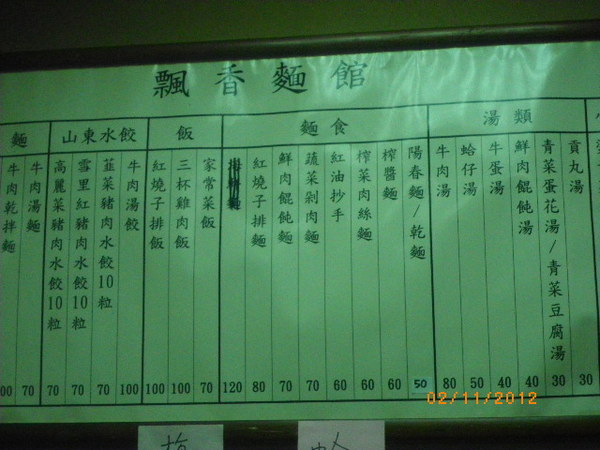 飄香麵館
湯類
貢丸湯 30
青菜蛋花湯/青菜豆腐湯 30
鮮肉餛飩湯 40
牛蛋湯 40
蛤仔湯 50
牛肉湯 80
麵食
陽春麵/乾麵 50
榨醬麵 60
榨菜肉絲麵 60
紅油抄手 60
蔬菜剁肉麵 70
鮮肉餛飩麵 70
紅燒子排麵 80
120
飯
家常菜飯 70
三杯雞肉飯 100
紅燒子排飯 100
山東水餃
牛肉湯餃 100
韮菜豬肉水餃10粒 70
雪里紅豬肉水餃10粒 70
高麗菜豬肉水餃10粒 70
麵
牛肉湯麵 70
牛肉乾拌麵 00
02/11/2012